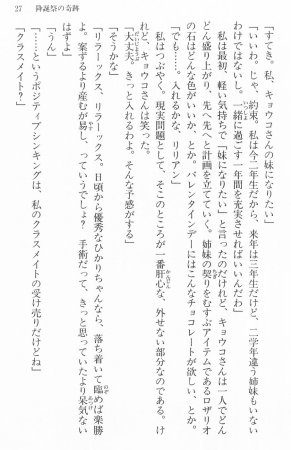 27　降誕祭の奇跡
「すてき。私、キョウコさんの妹になりたい」
「いいわ。じゃ、約束。私は今二年生だから、来年は三年生だけど、二学年違う姉妹もいない
わけではないし。一緒に過ごす一年間を充実させればいいんだわ」
私は最初、軽い気持ちで「妹になりたい」と言ったのだけれど、キョウコさんは一人でどん
どん盛り上がり、先へ先へと計画を立てていく。姉妹の契りをむすぶアイテムであるロザリオ
の石はどんな色がいいか、とか。バレンタインデーにはこんなチョコレートが欲しい、とか。
「でも……。入れるかな、リリアン」
私はつぶやく。現実問題として、そこのところが一番肝心な、外せない部分なのである。け
れど、キョウコさんは笑った。
「大丈夫。きっと入れるわよ。そんな予感がする」
「そうかな」
「リラーックス、リラーックス。日頃から優秀なひかりちゃんなら、落ち着いて臨めば楽勝
よ。案ずるより産むが易し、っていうでしょ？　手術だって、きっと思っていたより呆気ない
はずよ」
「うん」
「……というポジティブシンキングは、私のクラスメイトの受け売りだけどね」
「クラスメイト？」